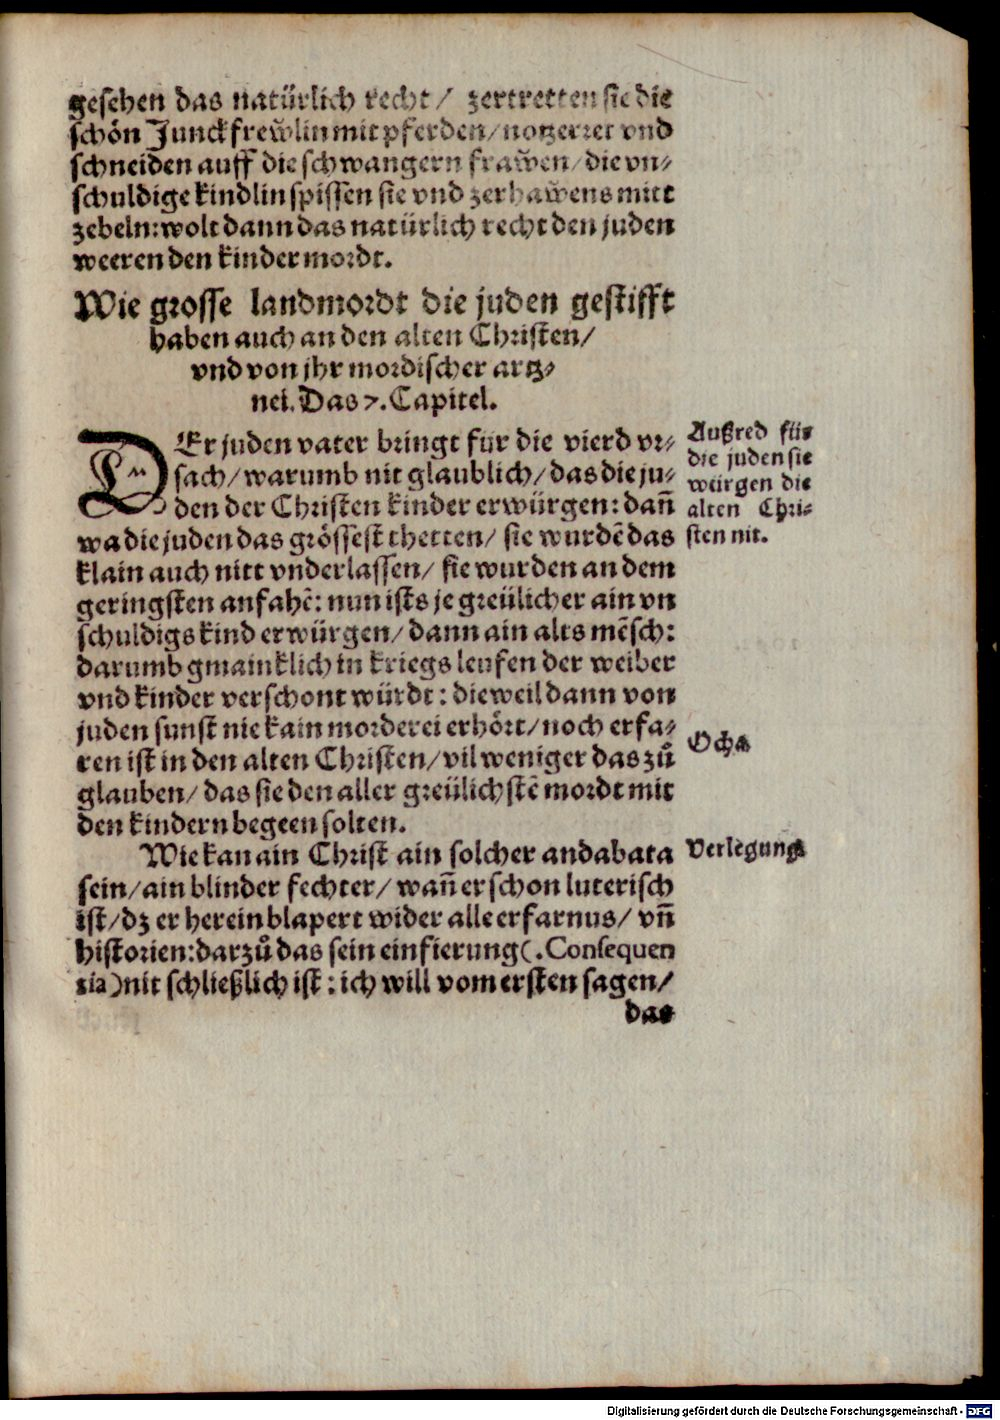 gesehen das natürlich recht/ zertretten sie die
schön Junckfrewlin mit pferden/ notzerret vnd
schneiden auff die schwangern frawen/ die vn-
schuldige kindlin spissen sie vnd zerhawens mitt
zebeln: wolt dann das natürlich recht den juden
weeren den kinder mordt.
Wie grosse landmordt die juden gestifft
haben auch an den alten Christen/
vnd von jhr mordischer artz-
nei. Das 7. Capitel.
DEr juden vater bringt für die vierd vr-
sach/ warumb nit glaublich/ das die ju-
den der Christen kinder erwürgen: dañ
wa die juden das grössest thetten/ sie wurdē das
klain auch nitt vnderlassen/ sie wurden an dem
geringsten anfahē: nun ists je greülicher ain vn
schuldigs kind erwürgen/ dann ain alts mēsch:
darumb gmainklich in kriegs leufen der weiber
vnd kinder verschont würdt: dieweil dann von
juden sunst nie kain morderei erhört/ noch erfa-
ren ist in den alten Christen/ vil weniger das zů
glauben/ das sie den aller greülichstē mordt mit
den kindern begeen solten.
Wie kan ain Christ ain solcher andabata
sein/ ain blinder fechter/ wañ er schon luterisch
ist/ dz er herein blapert wider alle erfarnus/ vñ
historien: darzů das sein einfierung (. Consequen
tia) nit schließlich ist: ich will vom ersten sagen/
das
Außred für
die juden sie
würgen die
alten Chri-
sten nit.
Ocha
Verlegung
Digitalisierung gefördert durch die Deutsche Forschungsgemeinschaft - DFG